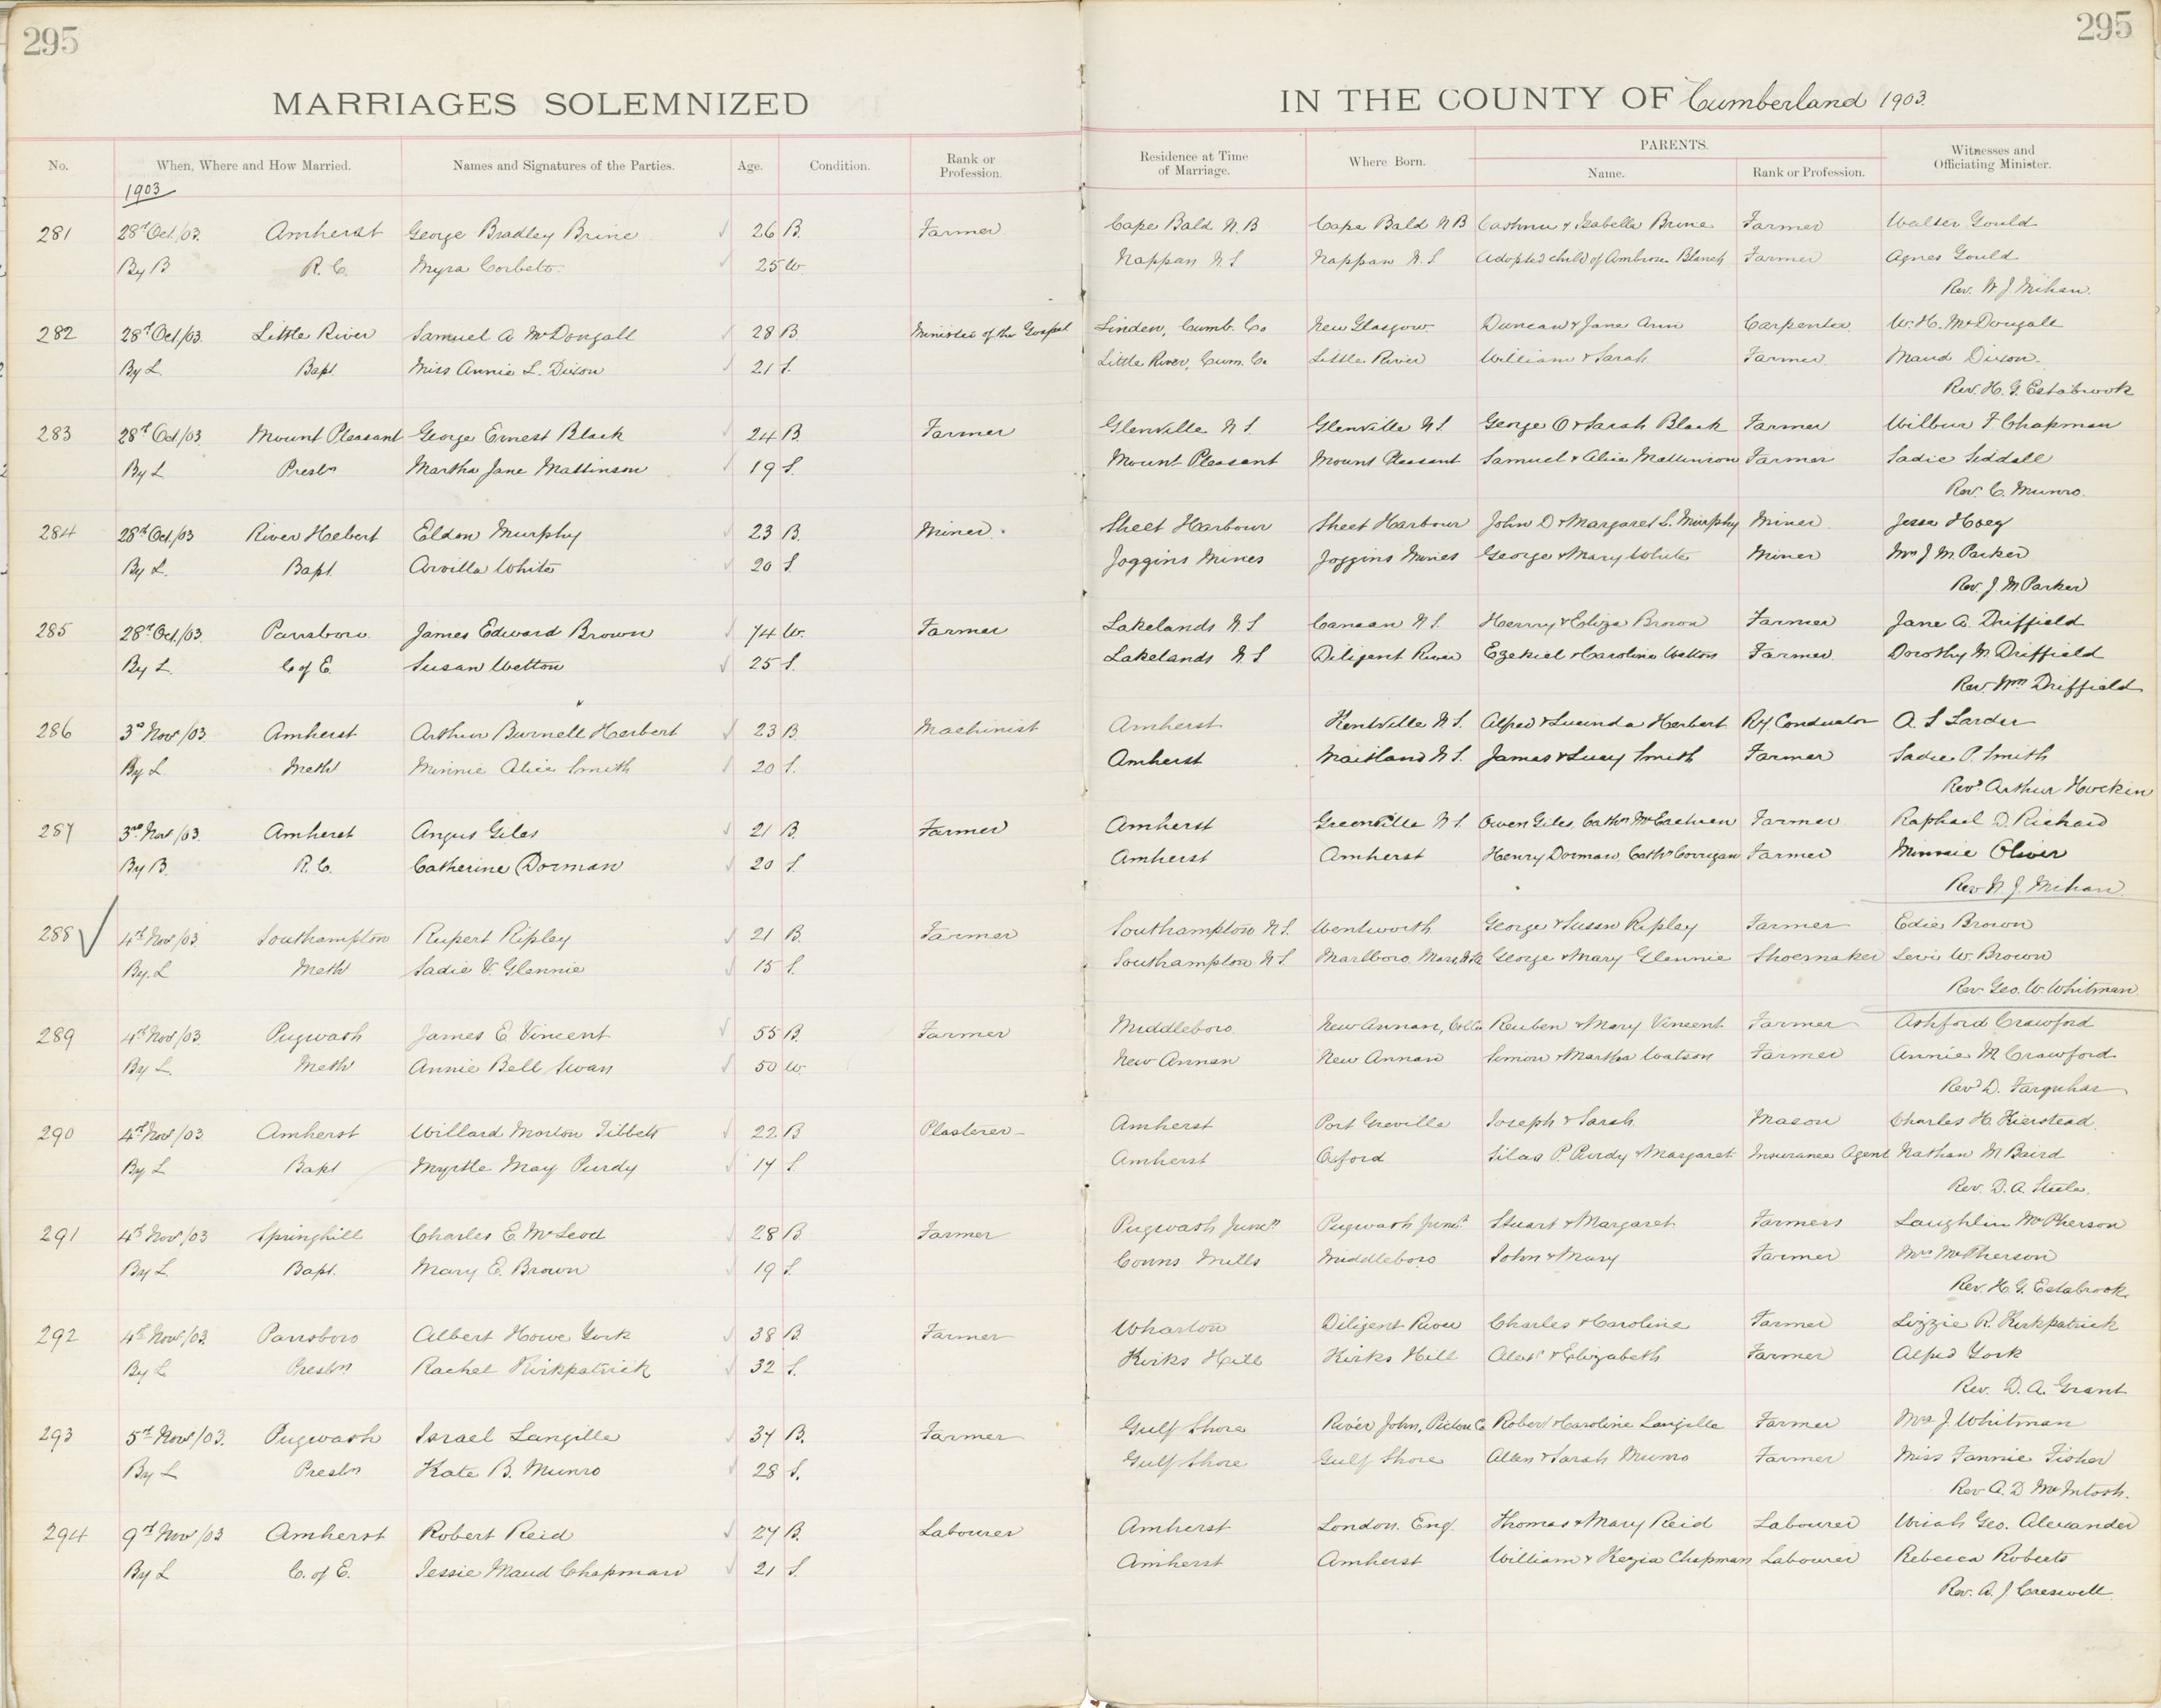 295
295
MARRIAGES SOLEMNIZED IN THE COUNTY OF Cumberland 1903.
No. When, Where and How Married. Names and Signatures of the Parties. Age. Condition. Rank or Profession. Residence at Time of Marriage. Where Born. PARENTS. Name. Rank or Profession. Witnesses and Officiating Minister.
1903
281 28th Oct./03. Amherst George Bradley Brine 26 B. Farmer Cape Bald N.B Cape Bald N B & Isabella Brine Farmer Walter Gould
By B R. C. Myra Corbett. 25 W. Nappan N.S Nappan N.S Adopted child of Ambrose Blanch Farmer Agnes Gould
Rev. W. J. Mihan.
282 28th Oct/03. Little River Samuel A McDougall 28 B. Minister of the Gospel Linden, Cumb. Co New Glasgow Duncan & Jane Ann Carpenter. W. H. McDougall
By L. Bapt. Miss Annie L. Dixon 21 S. Little River, Cum. Co. Little River William & Sarah Farmer. Maud Dixon.
Rev. H. G. Estabrook
283 28th Oct/03 Mount Pleasant George Ernest Black 24 B. Farmer Glenville N S. Glenville N S George O & Sarah Black Farmer Wilbur F. Chapman
By L Presbn Martha Jane Mattinson 19 S. Mount Pleasant Mount Pleasant Samuel & Alice Mattinson Farmer Sadie Siddall
Rev. C. Munro.
284 28th Oct./03 River Hebert Eldon Murphy 23 B. Miner. Sheet Harbour Sheet Harbour John D & Margaret L. Murphy Miner Jesse Hoeg
By L. Bapt. Arvilla White 20 S. Joggins Mines Joggins Mines George & Mary White Miner Mrs J. M. Parker
Rev. J. M. Parker
285 28th Oct./03. Parrsboro. James Edward Brown 74 W. Farmer Lakelands N.S Canaan N S. Henry & Eliza Brown Farmer Jane A. Driffield
By L. C of E. Susan Wetton 25 S. Lakelands N S Diligent River Ezekiel & Caroline Wetton Farmer. Dorothy M. Driffield
Rev. Wm Driffield
286 3rd Nov/03. Amherst Arthur Burnell Herbert 23 B. Machinist Amherst Kentville N S. Alfred & Lucinda Herbert Ry. Conductor A. S Larder
By L. Meth Minnie Alice Smith 20 S. Amherst Maitland N S. James & Lucy Smith Farmer Sadie P. Smith
Revd Arthur Hockin
287 3rd Nov/03. Amherst Angus Giles 21 B. Farmer Amherst Greenville N S. Owen Giles, Cathn Farmer Raphael D. Richard
By B. R. C. Catherine Dorman 20 S. Amherst Amherst Henry Dorman, Cathn Corrigan Farmer Minnie Oliver
Rev W. J. Mihan
288 4th Nov/03 Southampton Rupert Ripley 21 B. Farmer Southampton N.S. Wentworth George & Susan Ripley Farmer Edie Brown
By. L Meth Sadie V. Glennie 15 S. Southampton N.S. Marlboro, Mass, George & Mary Glennie Shoemaker Levi W. Brown
Rev. Geo. W. Whitman
289 4th Nov/03. Pugwash James E Vincent 55 B. Farmer Middleboro. New Annan, Reuben & Mary Vincent Farmer Ashford Crawford
By L. Meth Annie Bell Swan 50 W. New Annan New Annan Simon & Martha Watson Farmer Annie M. Crawford
Revd D. Farquhar
290 4th Nov/03. Amherst Willard Morton Tibbets 22 B Plasterer Amherst Port Greville Joseph & Sarah Mason Charles H. Kierstead.
By L Bapt Myrtle May Purdy 17 S. Amherst Oxford Silas P. Purdy & Margaret Insurance Agent Nathan M. Baird
Rev. D. A. Steele.
291 4th Nov/03 Springhill Charles E. McLeod 28 B. Farmer Pugwash Juncn Pugwash Junct Stuart & Margaret Farmers Laughlin McPherson
By L. Bapt. Mary E. Brown 19 S. Conns Mills Middleboro John & Mary Farmer Mrs McPherson
Rev. H. G. Estabrook.
292 4th Nov/03. Parrsboro Albert Howe York 38 B. Farmer Wharton Diligent River Charles & Caroline Farmer Lizzie R. Kirkpatrick
By L Presbn Rachel Kirkpatrick 32 S. Kirks Hill Kirks Hill Alexr & Elizabeth Farmer Alfred York
Rev. D. A. Grant
293 5th Nov/03. Pugwash Israel Langille 37 B. Farmer Gulf Shore River John, Pictou Co Robert & Caroline Langille Farmer Mrs J. Whitman
By L Presbn Kate B. Munro 28 S. Gulf Shore Gulf Shore Allen & Sarah Munro Farmer Miss Fannie Fisher
Rev A. D McIntosh.
294 9th Nov/03 Amherst Robert Reid 27 B. Labourer Amherst London. Eng. Thomas & Mary Reid Labourer Uriah Geo. Alexander
By L C. of E. Jessie Maud Chapman 21 S. Amherst Amherst William & Kezia Chapman Labourer Rebecca Roberts
Rev. A. J. Creswell.